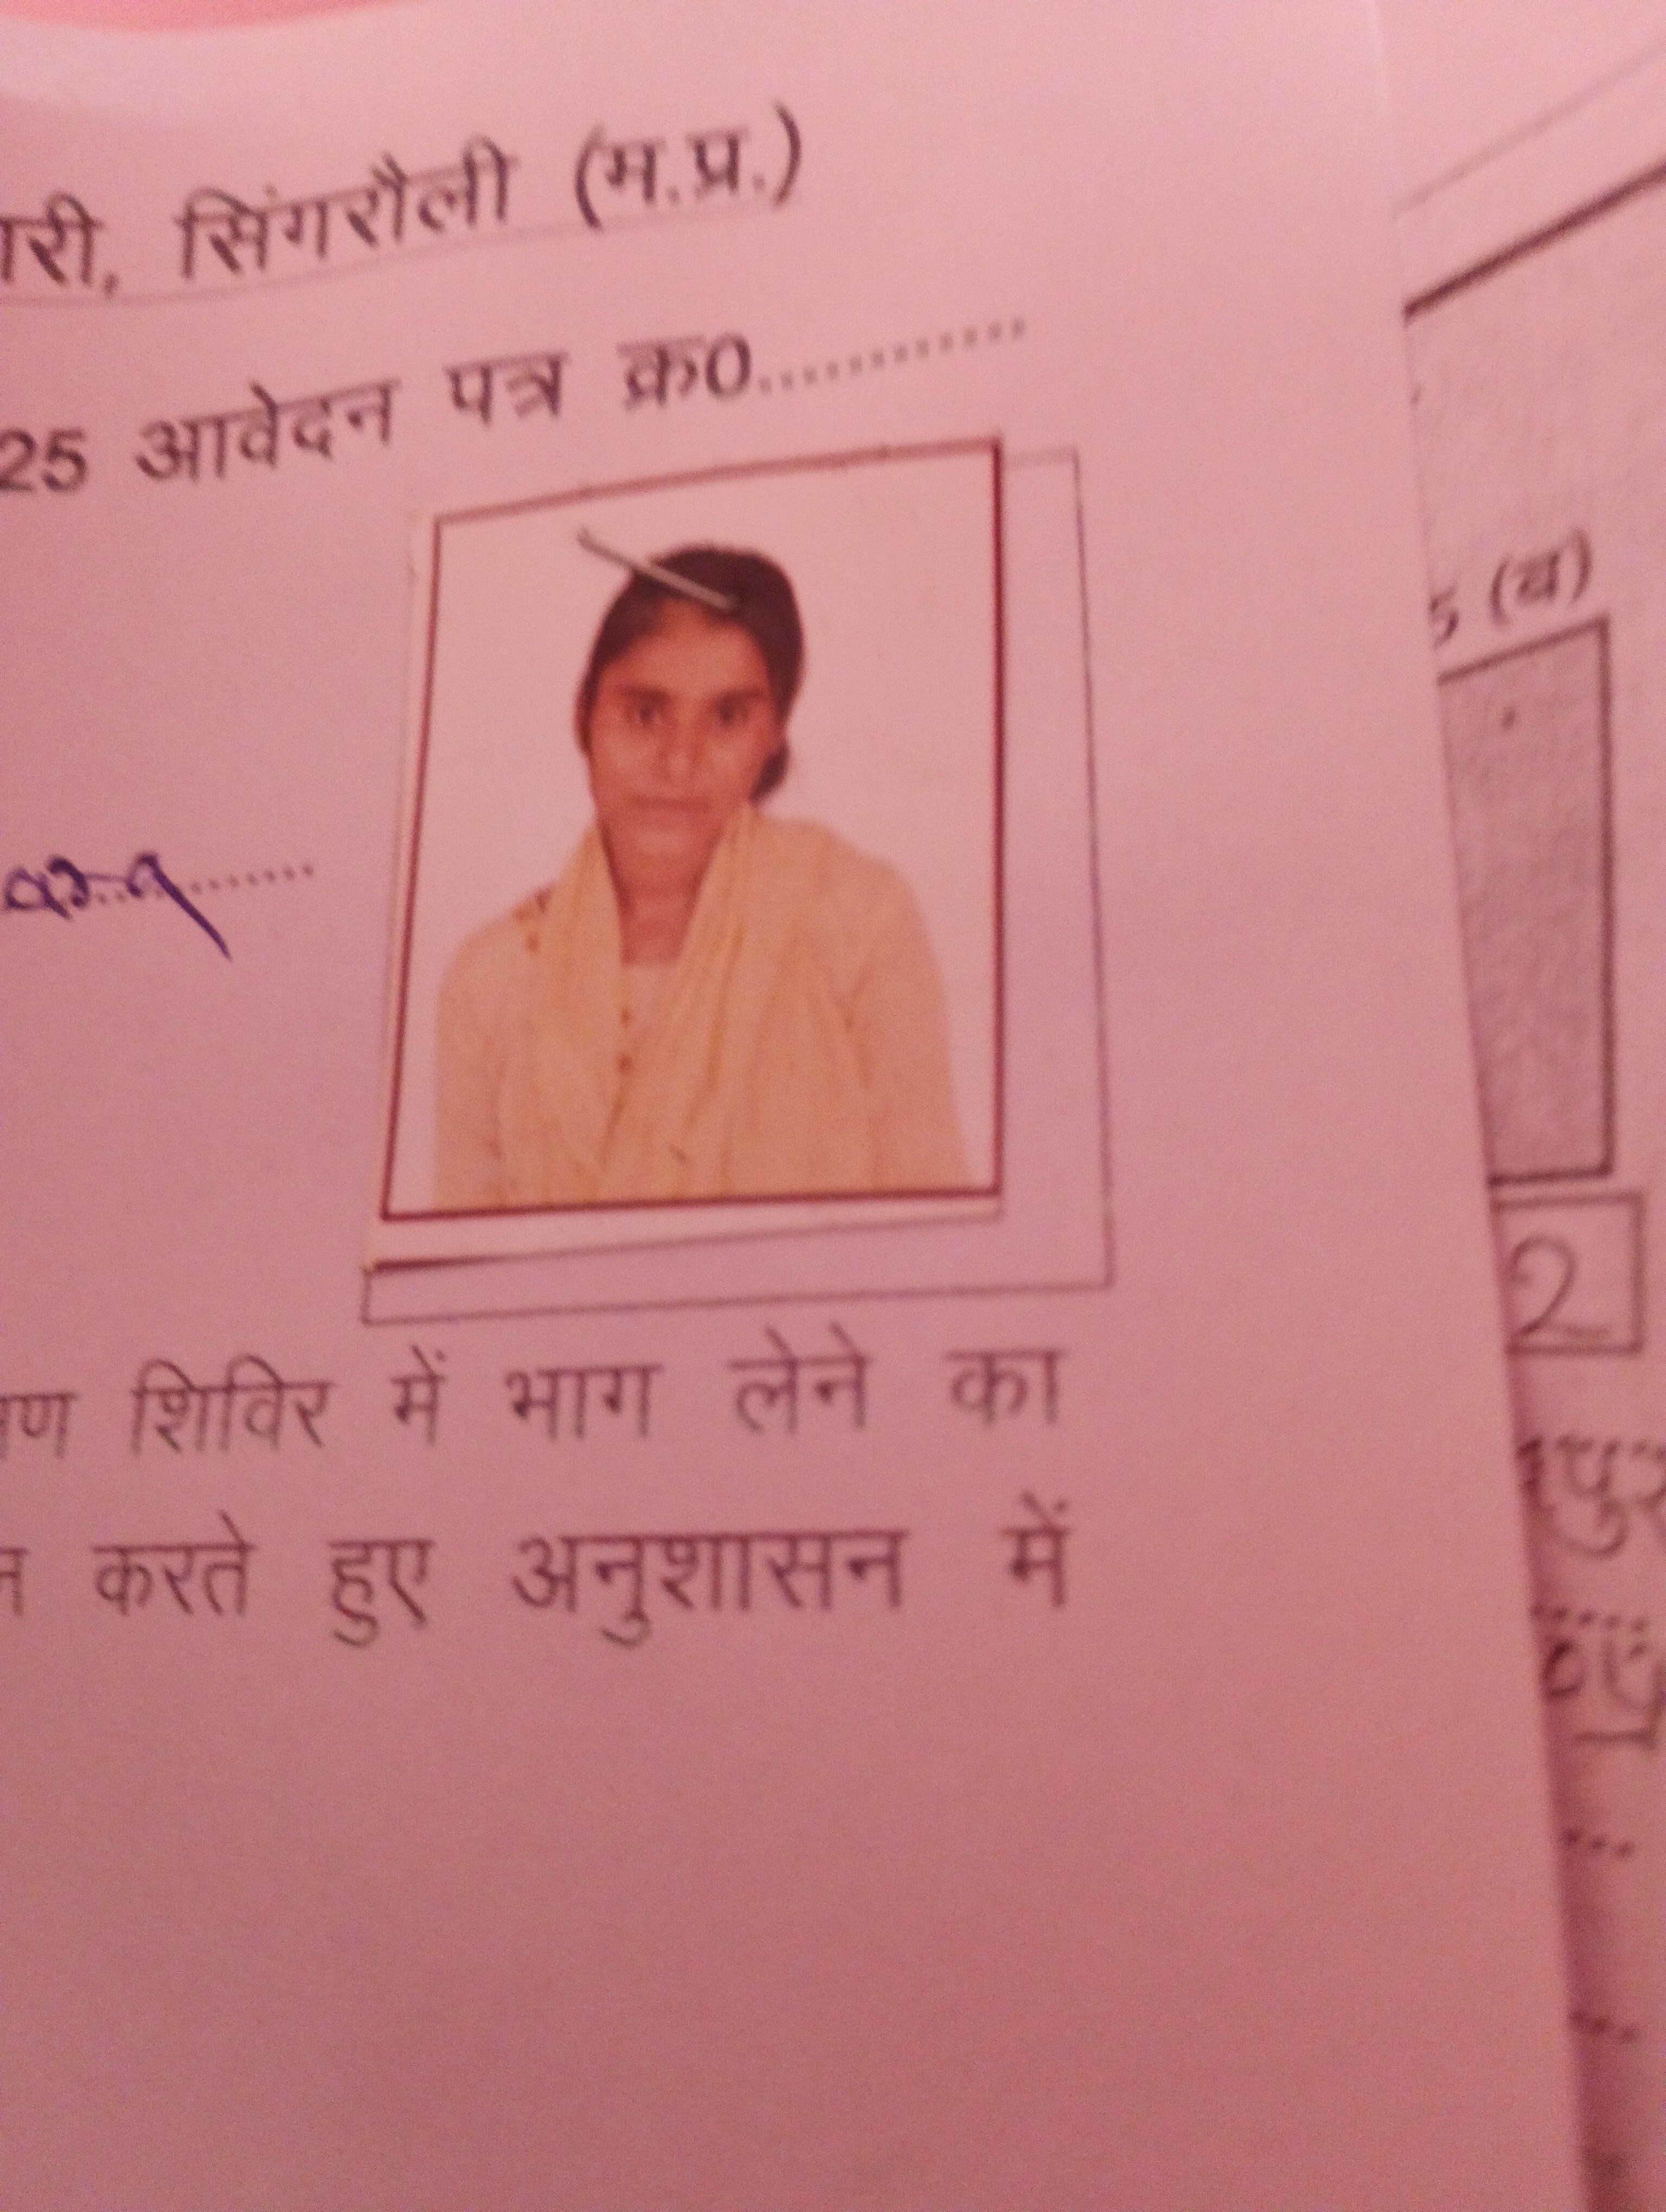 सिंगरौली (म.प्र.)
25 आवेदन पत्र क्र0............
(ब)
2
शिविर में भाग लेने का
करते हुए अनुशासन में